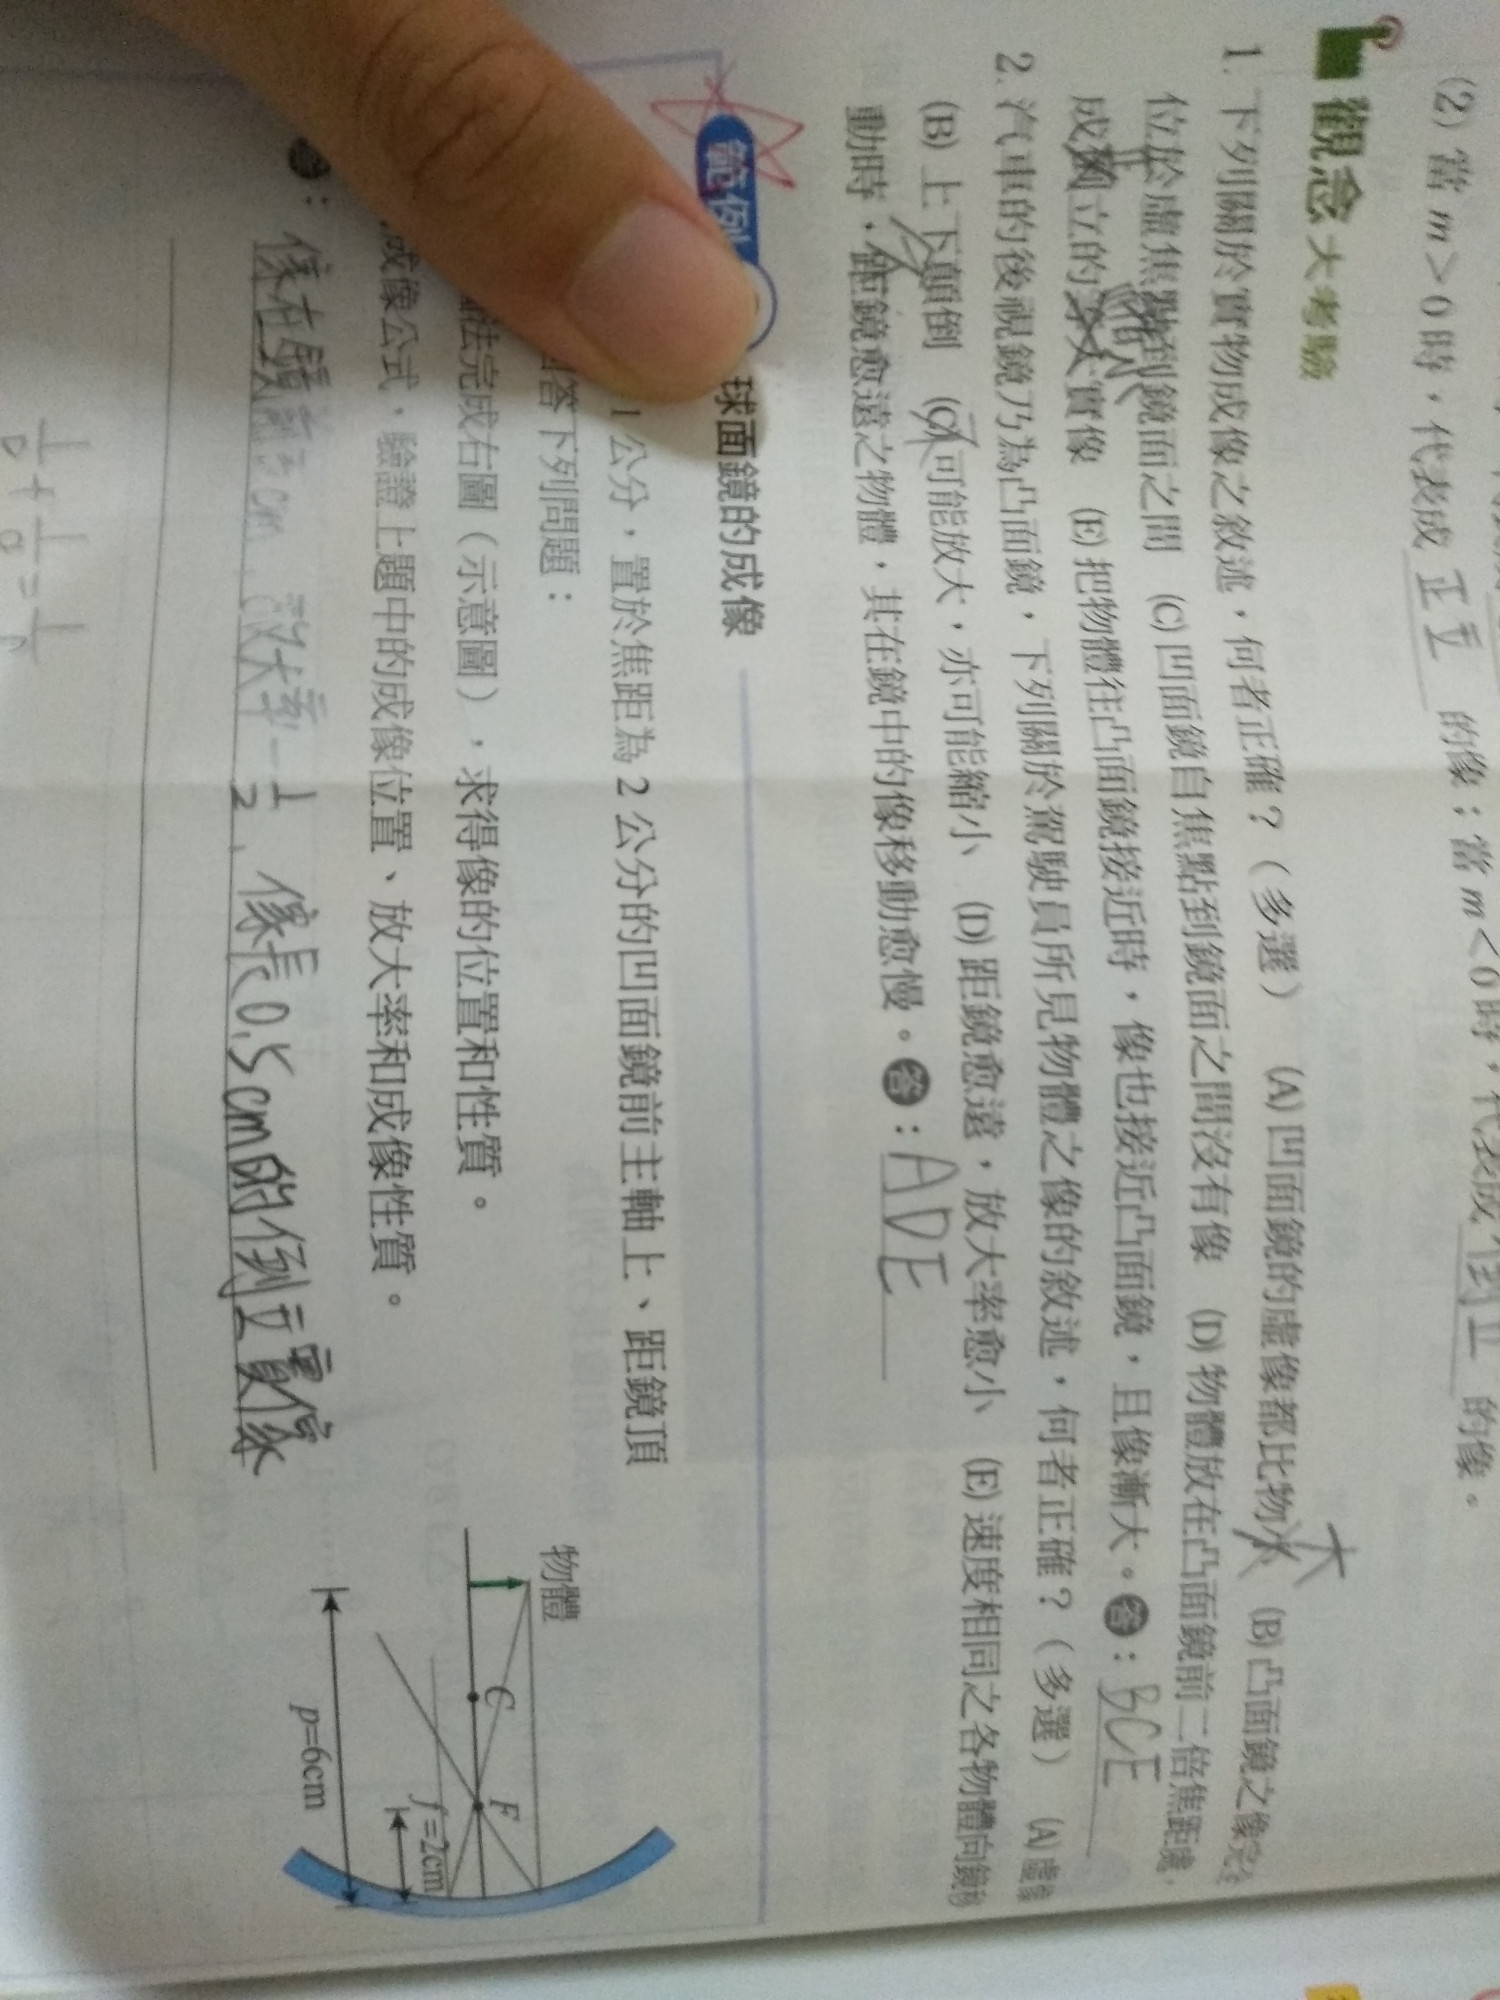 (2) 當 m > 0 時，代表成 正立 的像；當 m < 0 時，代表成 倒立 的像。
觀念大考驗
1. 下列關於實物成像之敘述，何者正確？（多選） (A) 凹面鏡的虛像都比物 大 (B) 凸面鏡之像完全
位於虛焦點到鏡面之間 (C) 凹面鏡自焦點到鏡面之間沒有像 (D) 物體放在凸面鏡前二倍焦距處，
成 立的 實像 (E) 把物體往凸面鏡接近時，像也接近凸面鏡，且像漸大。答：BCE
2. 汽車的後視鏡乃為凸面鏡，下列關於駕駛員所見物體之像的敘述，何者正確？（多選） (A) 虛像
(B) 上下顛倒 (C) 可能放大，亦可能縮小 (D) 距鏡愈遠，放大率愈小 (E) 速度相同之各物體向鏡移
動時，距鏡愈遠之物體，其在鏡中的像移動愈慢。答：ADE
範例 球面鏡的成像
1 公分，置於焦距為 2 公分的凹面鏡前主軸上、距鏡頂
回答下列問題：
法完成右圖（示意圖），求得像的位置和性質。
成像公式，驗證上題中的成像位置、放大率和成像性質。
像在鏡前3cm，放大率 -1/2，像長0.5cm的倒立實像
物體
C
F
f=2cm
p=6cm